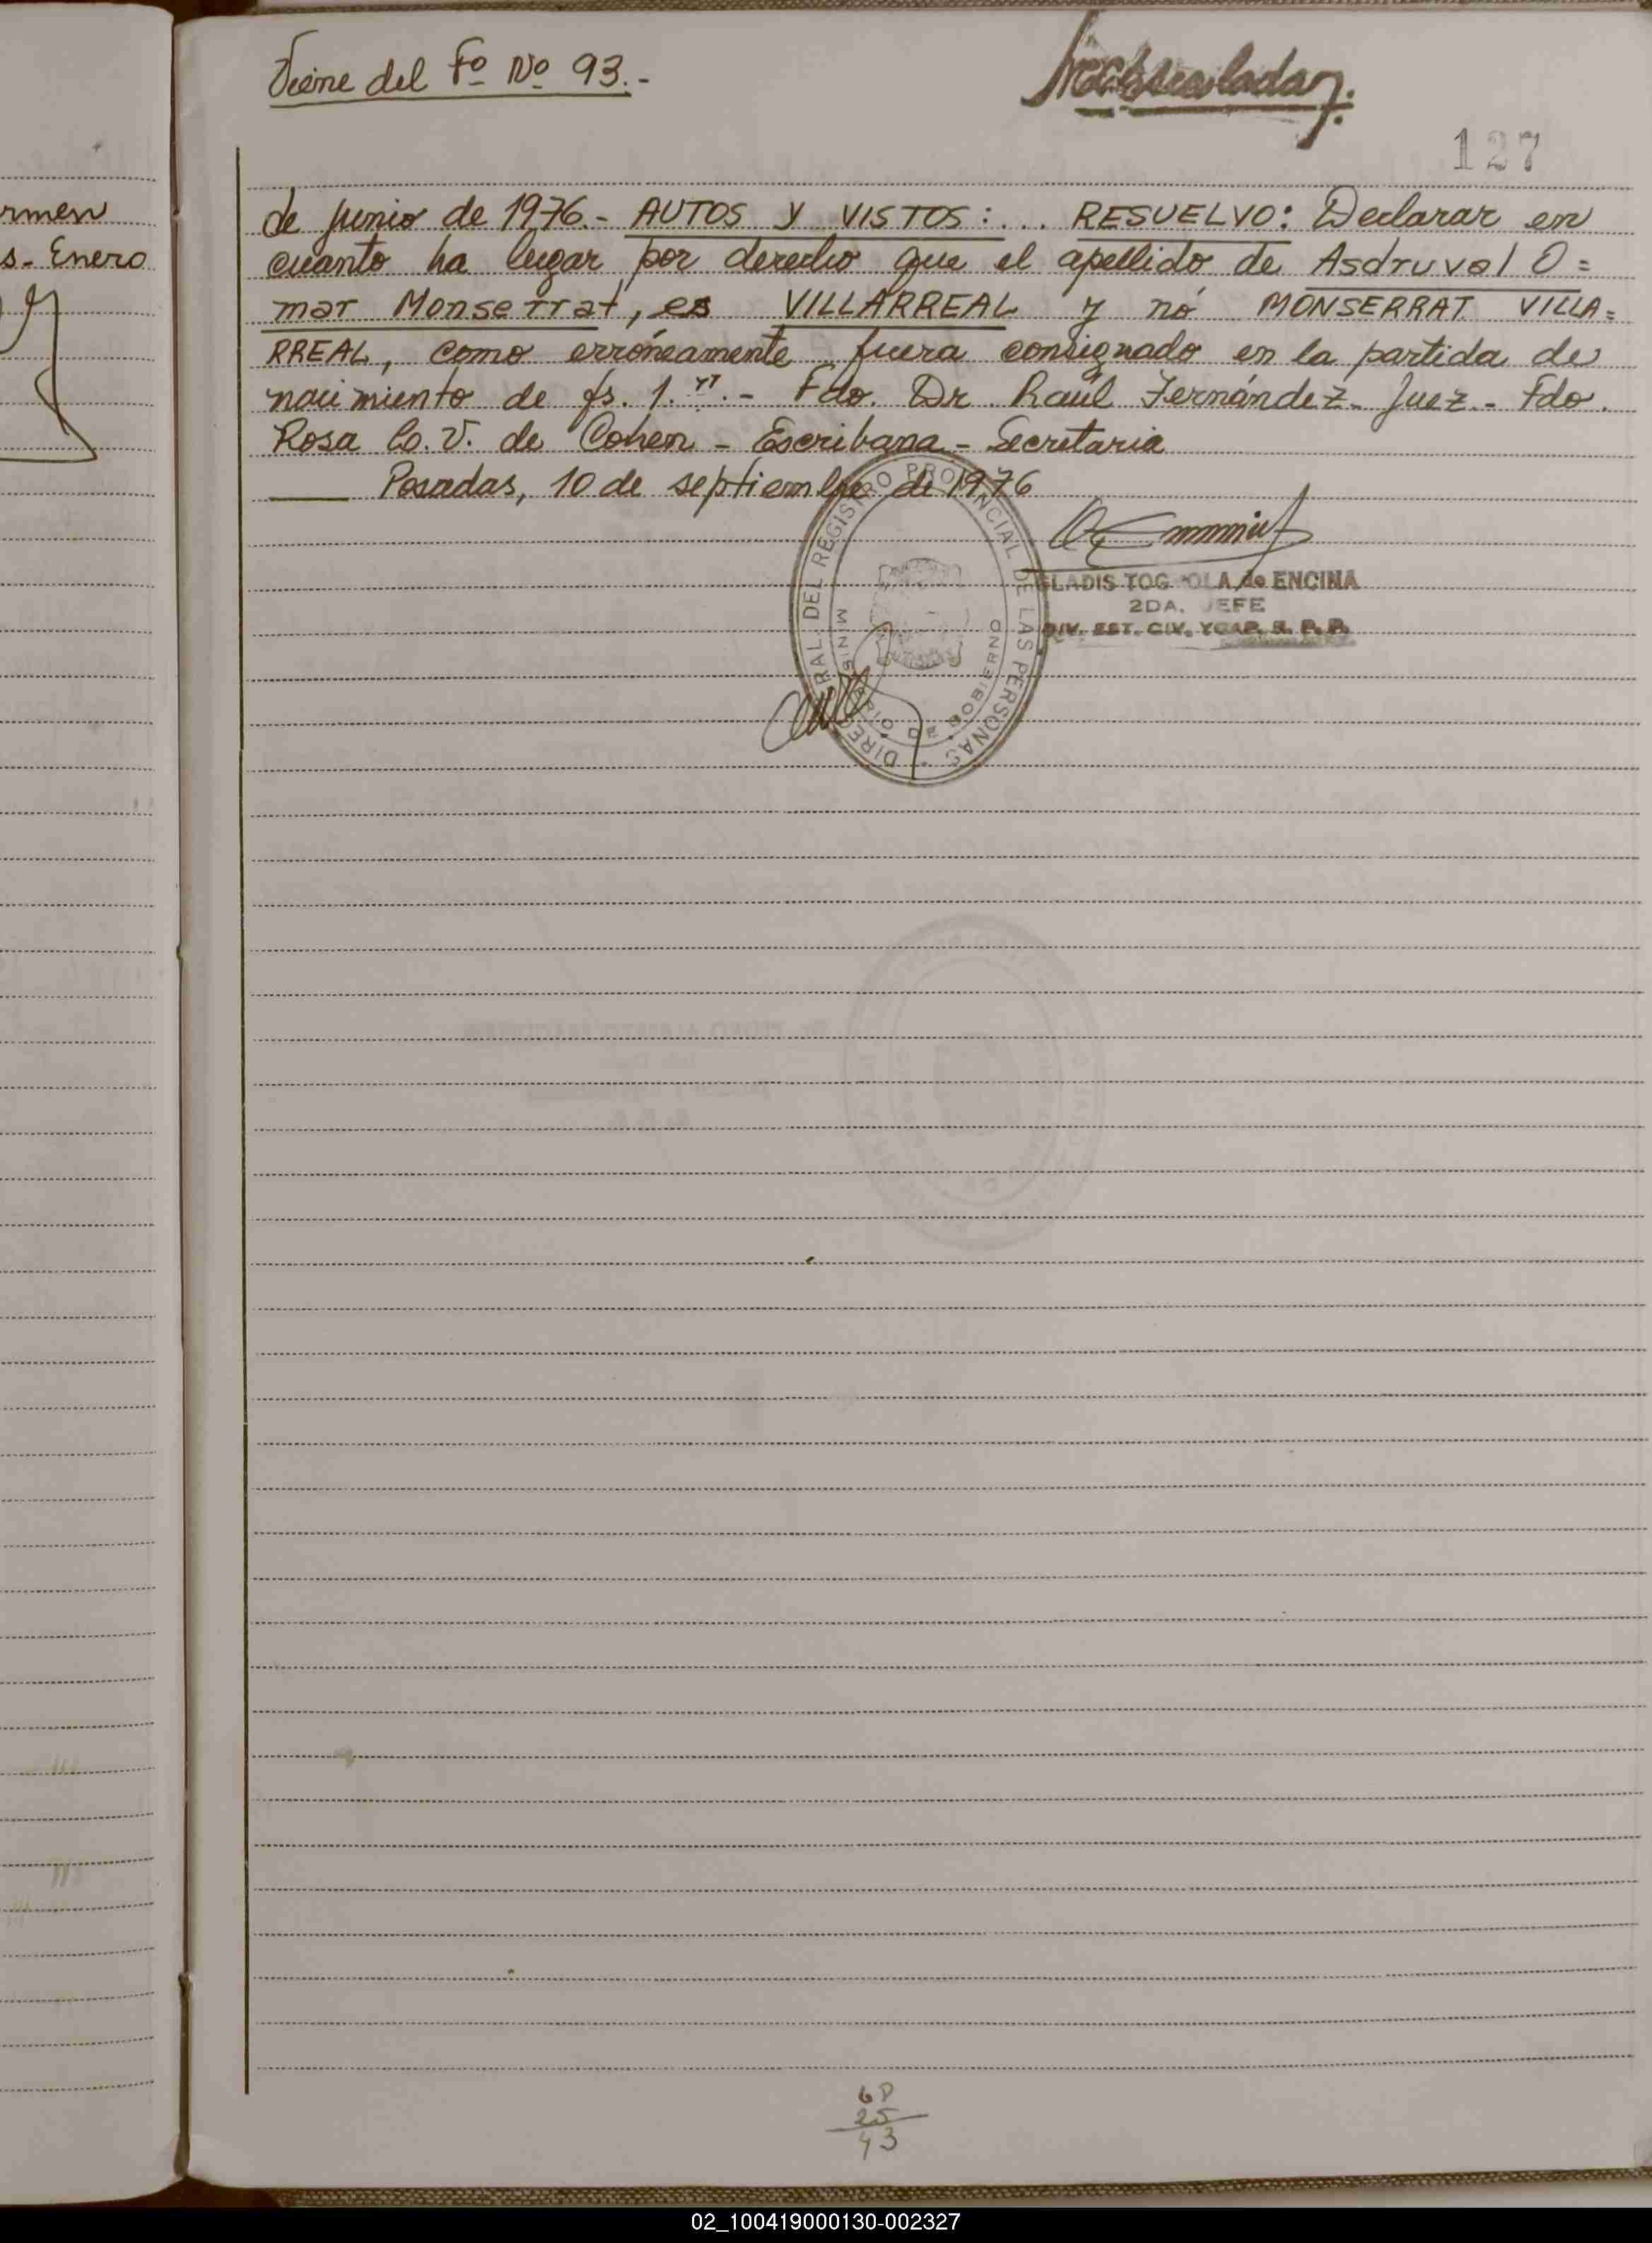 Viene del Fº Nº 93.-
127
rmen
s- Enero
de junio de 1976.- AUTOS Y VISTOS: ... RESUELVO: Declarar en
cuanto ha lugar por derecho que el apellido de Asdruval O=
mar Monserrat, es VILLARREAL y nó MONSERRAT VILLA=
RREAL, como erróneamente fuera consignado en la partida de
nacimiento de fs. 1."".- Fdo. Dr. Raúl Fernández- Juez.- Fdo.
Rosa V. de Cohen - Escribana - Secretaria
Posadas, 10 de septiembre de 1976
DEL REGISTRO PROVINCIAL DE LAS PERSONAS
MINISTERIO DE GOBIERNO
GLADIS de ENCINA
2DA. JEFE
DIV. EST. CIV. Y CAP. R. P. P.
68
25
43
02_100419000130-002327